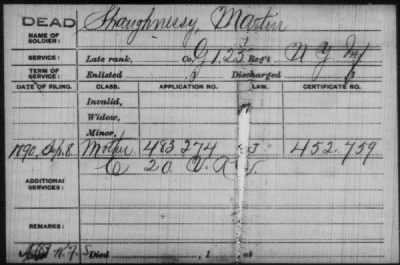 DEAD Shaughnessy, Martin
NAME OF SOLDIER:
SERVICE: Late rank, Co. G, 125 Reg't N Y Inf
TERM OF SERVICE: Enlisted , 1 Discharged , 1
DATE OF FILING. CLASS. APPLICATION NO. LAW. CERTIFICATE NO.
Invalid,
Widow,
Minor,
1890, Sep. 8. Mother 483.274 452.759
C 20
ADDITIONAL SERVICES:
REMARKS:
N.Y. Died , 1 at